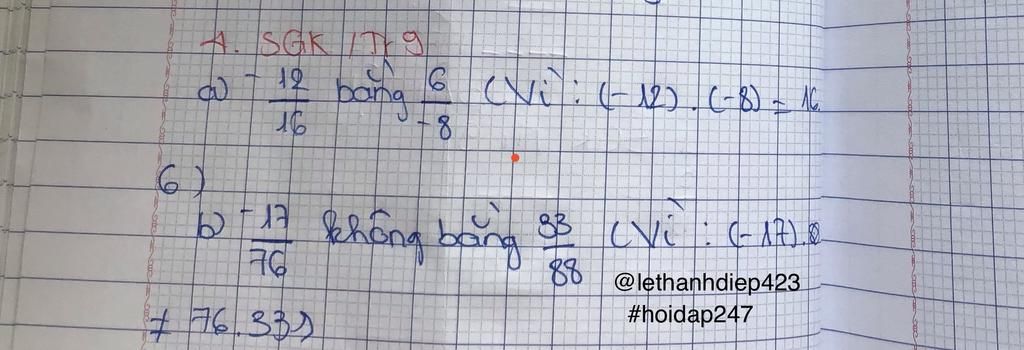 1. SGK / Tr 9
a) -12/16 bằng 6/-8 (Vì : (-12) . (-8) = 16.
6)
b) -17/76 không bằng 33/88 (Vì : (-17).8
≠ 76.33)
@lethanhdiep423
#hoidap247